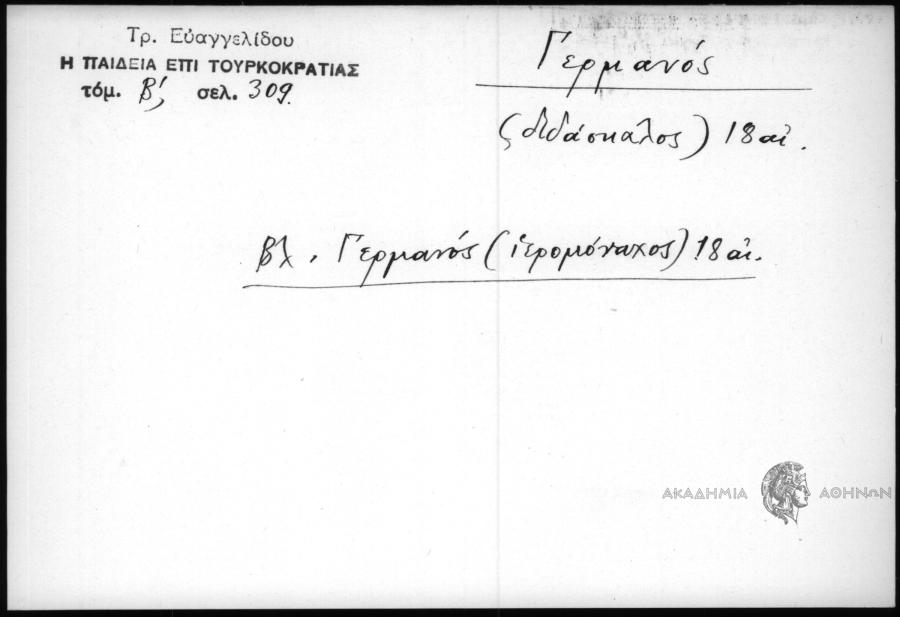 Τρ. Εὐαγγελίδου
Η ΠΑΙΔΕΙΑ ΕΠΙ ΤΟΥΡΚΟΚΡΑΤΙΑΣ
τόμ. Β', σελ. 309.
Γερμανός
(διδάσκαλος) 18 αἰ.
βλ. Γερμανός (ἱερομόναχος) 18 αἰ.
ΑΚΑΔΗΜΙΑ ΑΘΗΝΩΝ